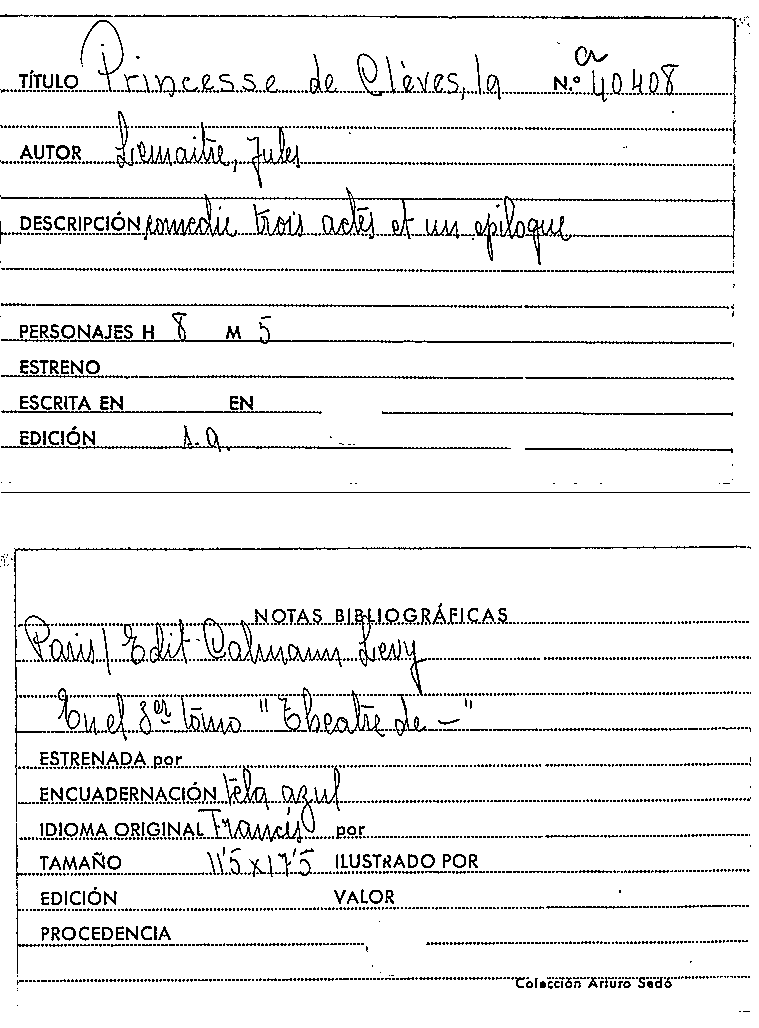 TÍTULO Princesse de Clèves, la N.º a 40408
AUTOR Lemaitre, Jules
DESCRIPCIÓN comedie trois actes et un epilogue
PERSONAJES H 8 M 5
ESTRENO
ESCRITA EN EN
EDICIÓN s.a.
NOTAS BIBLIOGRÁFICAS
Paris/ Edit Calmann Levy
En el 3er tomo "Theatre de —"
ESTRENADA por
ENCUADERNACIÓN tela azul
IDIOMA ORIGINAL Francés por
TAMAÑO 11'5 x 17'5 ILUSTRADO POR
EDICIÓN VALOR
PROCEDENCIA
Colección Arturo Sedó